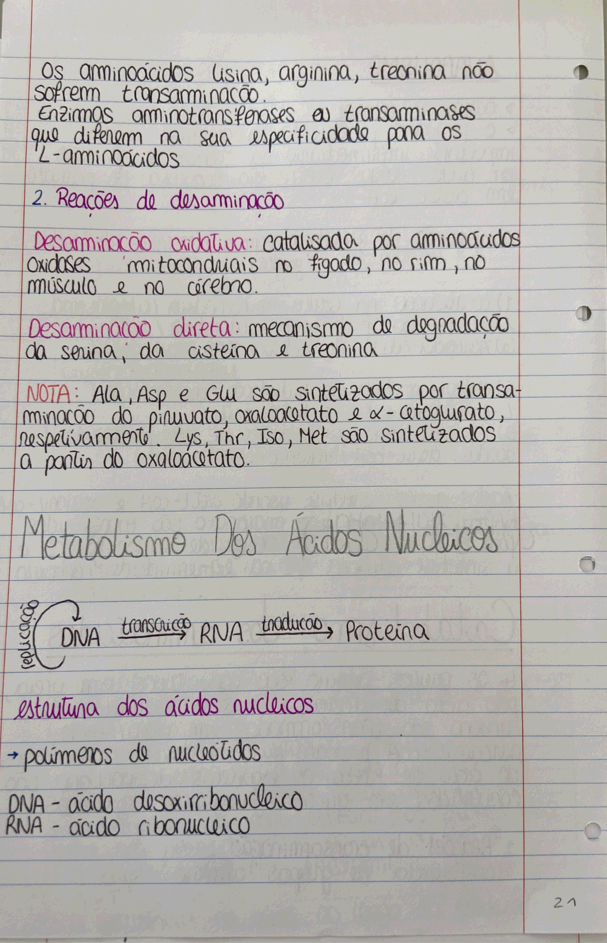 Os aminoácidos lisina, arginina, treonina não
sofrem transaminação.
Enzimas aminotransferases ou transaminases
que diferem na sua especificidade para os
L-aminoácidos
2. Reações de desaminação
Desaminação oxidativa: catalisada por aminoácidos
oxidases mitocondriais no fígado, no rim, no
músculo e no cérebro.
Desaminação direta: mecanismo de degradação
da serina, da cisteína e treonina
NOTA: Ala, Asp e Glu são sintetizados por transa-
minação do piruvato, oxaloacetato e α-cetoglurato,
respetivamente. Lys, Thr, Iso, Met são sintetizados
a partir do oxaloacetato.
Metabolismo Dos Ácidos Nucleicos
replicação
DNA transcrição → RNA tradução → Proteína
estrutura dos ácidos nucleicos
→ polímeros de nucleótidos
DNA - ácido desoxirribonucleico
RNA - ácido ribonucleico
21